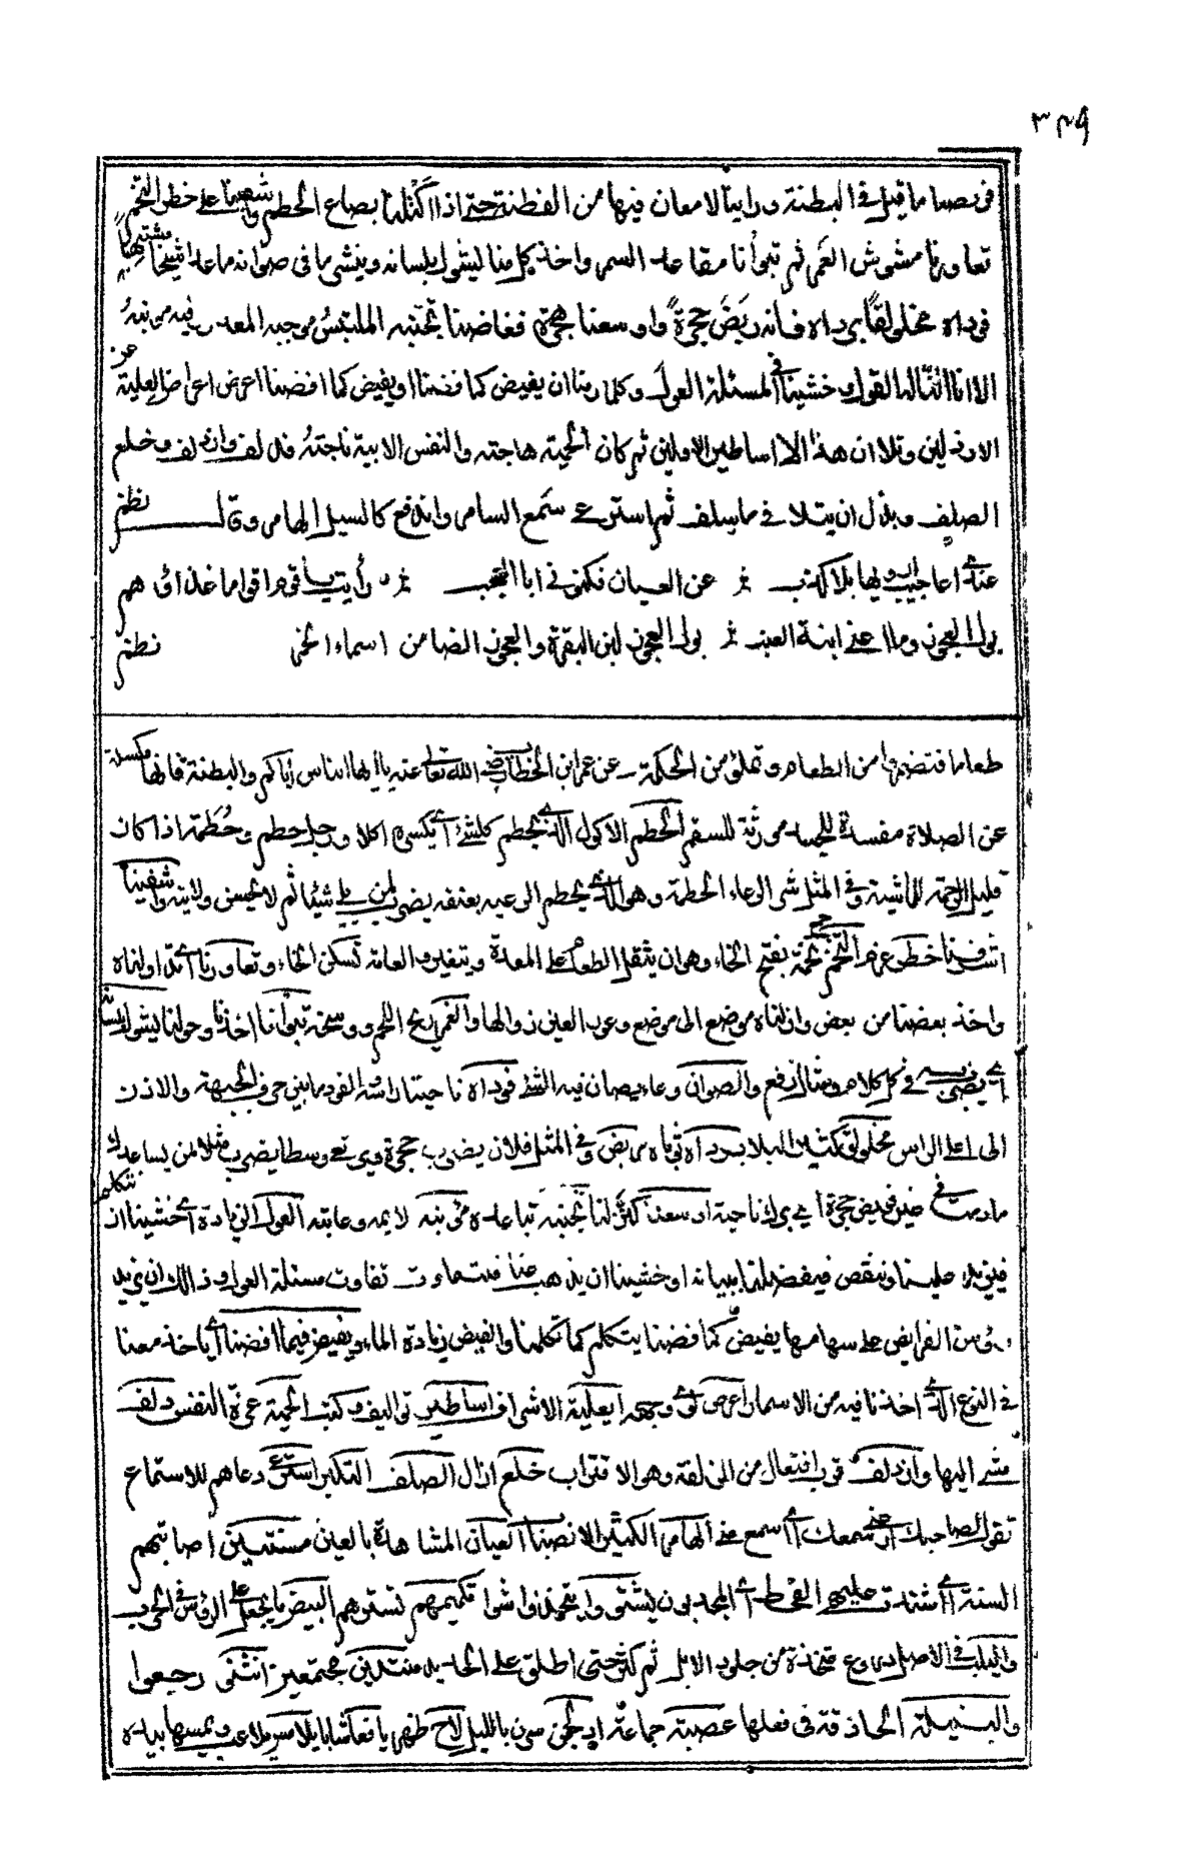 ٣٤٩
في بصاما قيل في البطنة ورأينا الامعان فيها من الفطنة حتى اذا اكتلنا بصاع الحطم واشفينا على خطر التخم
تعاورنا مشوش الغمر ثم تبوأنا مقاعد السمر واخذ كل منا يشول بلسانه وينشر ما في صوانه ما عدا شيخا مشتهبا
فوداه مخلولقا برداه فانه ربض حجرة واوسعنا هجرة فغاضنا تجنبه الملتبس موجبه المعذور فيه مؤنبه
الا انا النا له القول وخشينا في المسئلة العول وكلما رمنا ان يفيض كما فضنا او يفيض فيما افضنا اعرض اعراض العلية عن
الارذلين وتلا ان هذا الا اساطير الاولين ثم كان الحمية هاجته والنفس الابية ناجته فدلف وازدلف وخلع
الصلف وبذل ان يتلافى ما سلف ثم استرعى سمع السامر واندفع كالسيل الهامر وقال نظم
عندي اعاجيب ارويها بلا كذب عن العيان فكنوني ابا العجب رأيت يا قوم اقواما غذاؤهم
بول العجوز وما اعني ابنة العنب بول العجوز لبن البقرة والعجوز ايضا من اسماء الخمر نظم
طعاما فتضيقوا من الطعام وتملؤ من الحكمة عن عمر ابن الخطاب رضي الله تعالى عنه يا ايها الناس اياكم والبطنة فانها مكسلة
عن الصلاة مفسدة للجسد مورثة للسقم الحطم الاكول الذي يحطم كلشئ اي يكسره اكلا ورجل حطم وحطمة اذا كان
قليل الرحمة للماشية وفي المثل شر الرعاء الحطمة وهو الذي يحطم الرعية بعنفه يضرب لمن يلي شيئا ثم لا يحسن ولايته واشفينا
اشرفنا خطر غرر التخم جمع تخمة بفتح الخاء وهو ان يثقل الطعام على المعدة ويتغير والعامة تسكن الخاء وتعاورنا اي تداولناه
واخذ بعضنا من بعض وازلناه موضع الى موضع وعوب العلن زوالها والغمر ريح اللحم ووسخه تبوأنا اخذنا وحولنا يشول بلسانه
اي يضرب به في كل كلام ومثال يرفع والصوان وعاء يصان فيه الشئ فوداه ناحيتا راسه الفود ما بين حرف الجبهة والاذن
الى اعلى الراس مخلولق كثير البلا برداه ثوباه ربض وفي المثل فلان يضرب حجرة ويرتعي وسطا يضرب مثلا لمن يساعدك
ما دمت في خير فيربض حجرة اي يبرك ناحية اوسعنا كثر لنا تجنبه تباعده مؤنبه لايمه وعايبه العول الزيادة اي خشينا ان نتكلم
فيزيد علينا وينقص فيفضلنا ببيانه او خشينا ان يذهب عنا فتماوت تفاوت مسئلة العول وذلك ان يزيد
رؤس الفرايض على سهامها يفيض كما فضنا يتكلم كما تكلمنا والفيض زيادة الماء ويفيض فيما افضنا اي ياخذ معنا
في النوع الذي اخذنا فيه من الاسمار اعرض لوى وجهه العلية الاشراف اساطير تواليف وكتب الحمية عزة النفس دلف
مشى اليها وازدلف قرب افتعال من الزلفة وهو الاقتراب خلع ازال الصلف التكبر استرعى دعاهم للاستماع
تقول لصاحبك ارعني سمعك اي اسمع مني الهامر الكثير الانصباب العيان المشاهدة بالعين مسنتين اصابتهم
السنة اي اشتدت عليهم القحط اي المجدبون يشتووا يتخذوا شواء تكميهم تسترهم البيض ما يجعل على الرؤس في الحرب
واليلب في الاصل دروع متخذة من جلود الابل ثم كثر حتى اطلق على الحديد منتدين مجتمعين انثنى رجعوا
والبنيلة الحاذقة في فعلها عصبة جماعة ادلجن سرن بالليل لاح ظهر